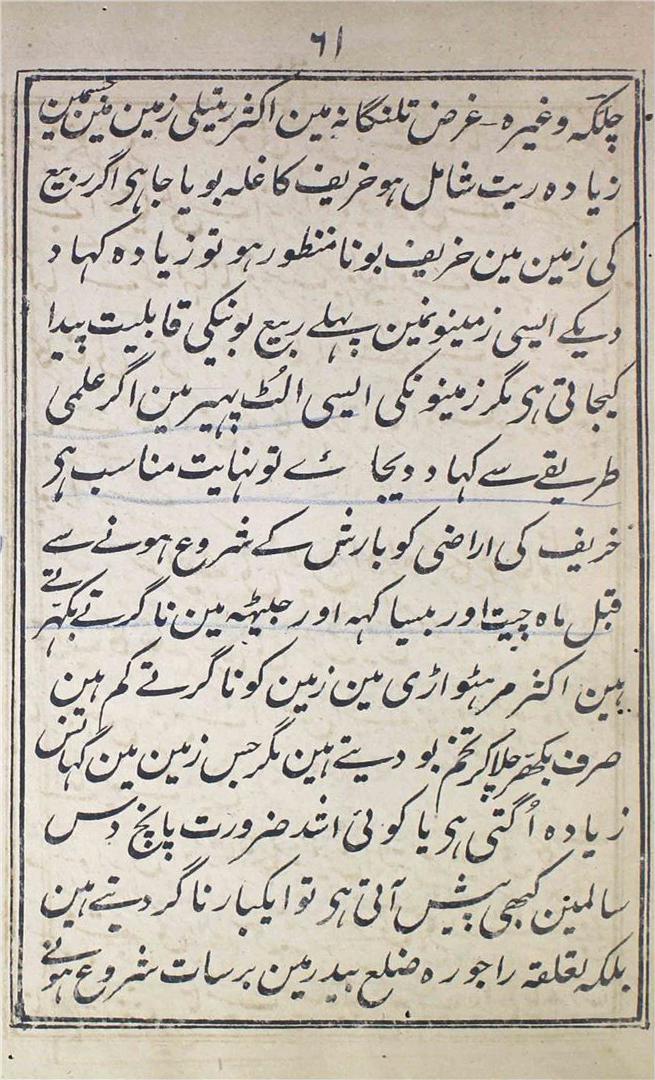 ۶۱
چلکہ وغیرہ۔ غرض تلنگانہ مین اکثر ریتیلی زمین مین جسمین
زیادہ ریت شامل ہو خریف کا غلہ بویا جاہی اگر ربیع
کی زمین مین خریف بونا منظور ہو تو زیادہ کہاد
دیکے ایسی زمینونمین پہلے ربیع بونیکی قابلیت پیدا
کیجاتی ہی مگر زمینونکی ایسی الٹ پہیر مین اگر علمی
طریقے سے کہاد دیجائے تو نہایت مناسب ہی
خریف کی اراضی کو بارش کے شروع ہونے سے
قبل ماہ چیت اور بیساکہہ اور جیٹہہ مین ناگرتے بکہرتے
ہین اکثر مرہٹواڑی مین زمین کو ناگرتے کم ہین
صرف بکھر چلاکر تخم بو دیتے ہین مگر جس زمین مین گہانس
زیادہ اُگتی ہی یا کوئی اشد ضرورت پانچ دس
سالمین کبھی پیش آتی ہی تو ایکبار ناگر دیتے ہین
بلکہ تعلقہ راجورہ ضلع بیدر مین برسات شروع ہوتے